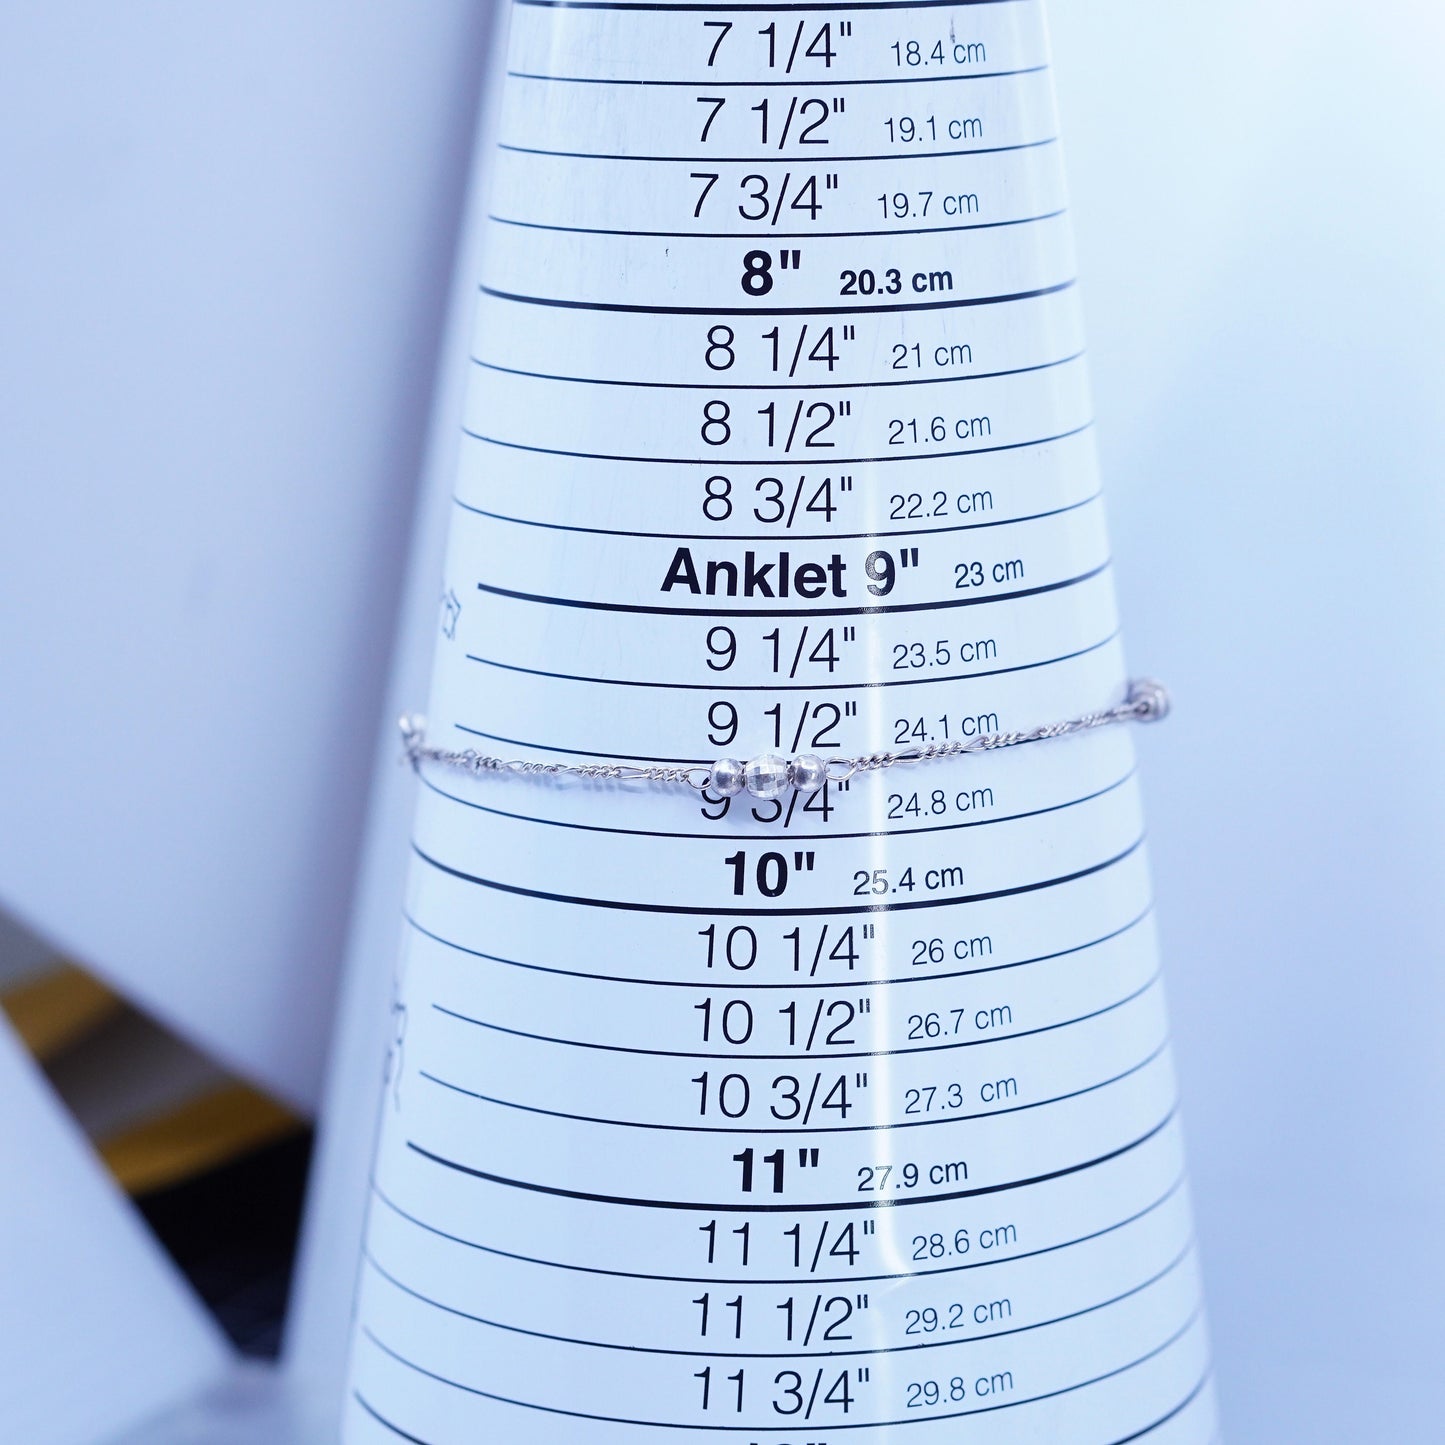 7 1/4" 18.4 cm
7 1/2" 19.1 cm
7 3/4" 19.7 cm
8" 20.3 cm
8 1/4" 21 cm
8 1/2" 21.6 cm
8 3/4" 22.2 cm
Anklet 9" 23 cm
9 1/4" 23.5 cm
9 1/2" 24.1 cm
9 3/4" 24.8 cm
10" 25.4 cm
10 1/4" 26 cm
10 1/2" 26.7 cm
10 3/4" 27.3 cm
11" 27.9 cm
11 1/4" 28.6 cm
11 1/2" 29.2 cm
11 3/4" 29.8 cm